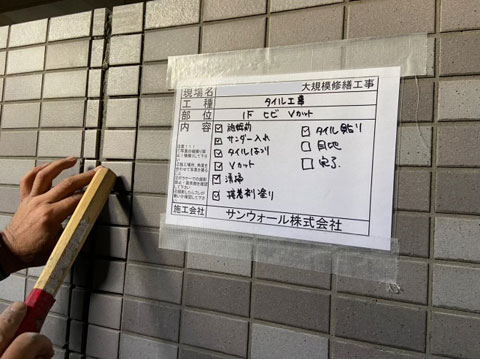 現場名 大規模修繕工事
工種 タイル工事
部位 1F ヒビ Vカット
内容 ☑ 施工前 ☑ タイル貼り
☑ サンダー入れ ☐ 目地
☑ タイルはつり ☐ 完了
☑ Vカット
☑ 清掃
☑ 接着剤塗り
施工会社 サンウォール株式会社